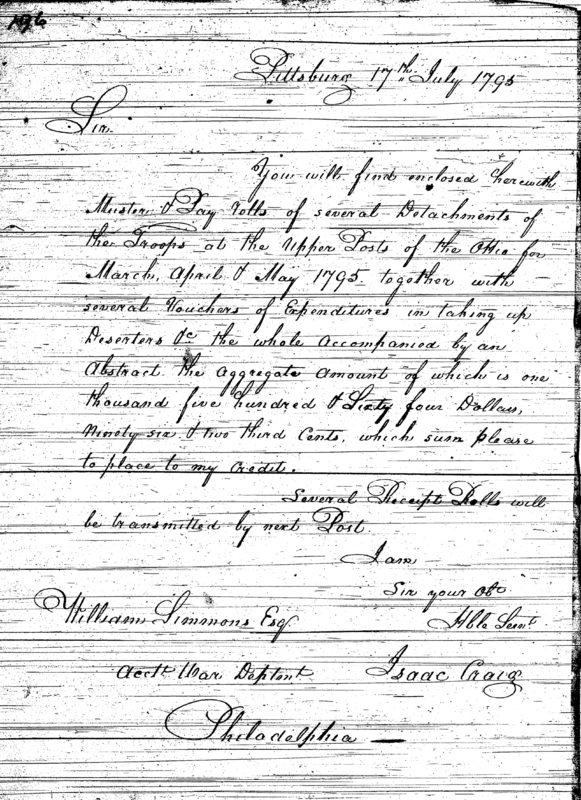 196
Pittsburg 17th July 1795
Sir
You will find enclosed herewith
Muster & Pay Rolls of several Detachments of
the Troops at the Upper Posts of the Ohio for
March, April & May 1795. together with
several Vouchers of Expenditures in taking up
Deserters &c the whole Accompanied by an
Abstract the aggregate amount of which is one
thousand five hundred & Sixty four Dollars,
Ninety six & two third Cents, which sum please
to place to my Credit.
Several Receipt Rolls will
be transmitted by next Post
I am
Sir your Obt
William Simmons Esq Hble Servt
Acctt War Deptmt Isaac Craig
Philadelphia —